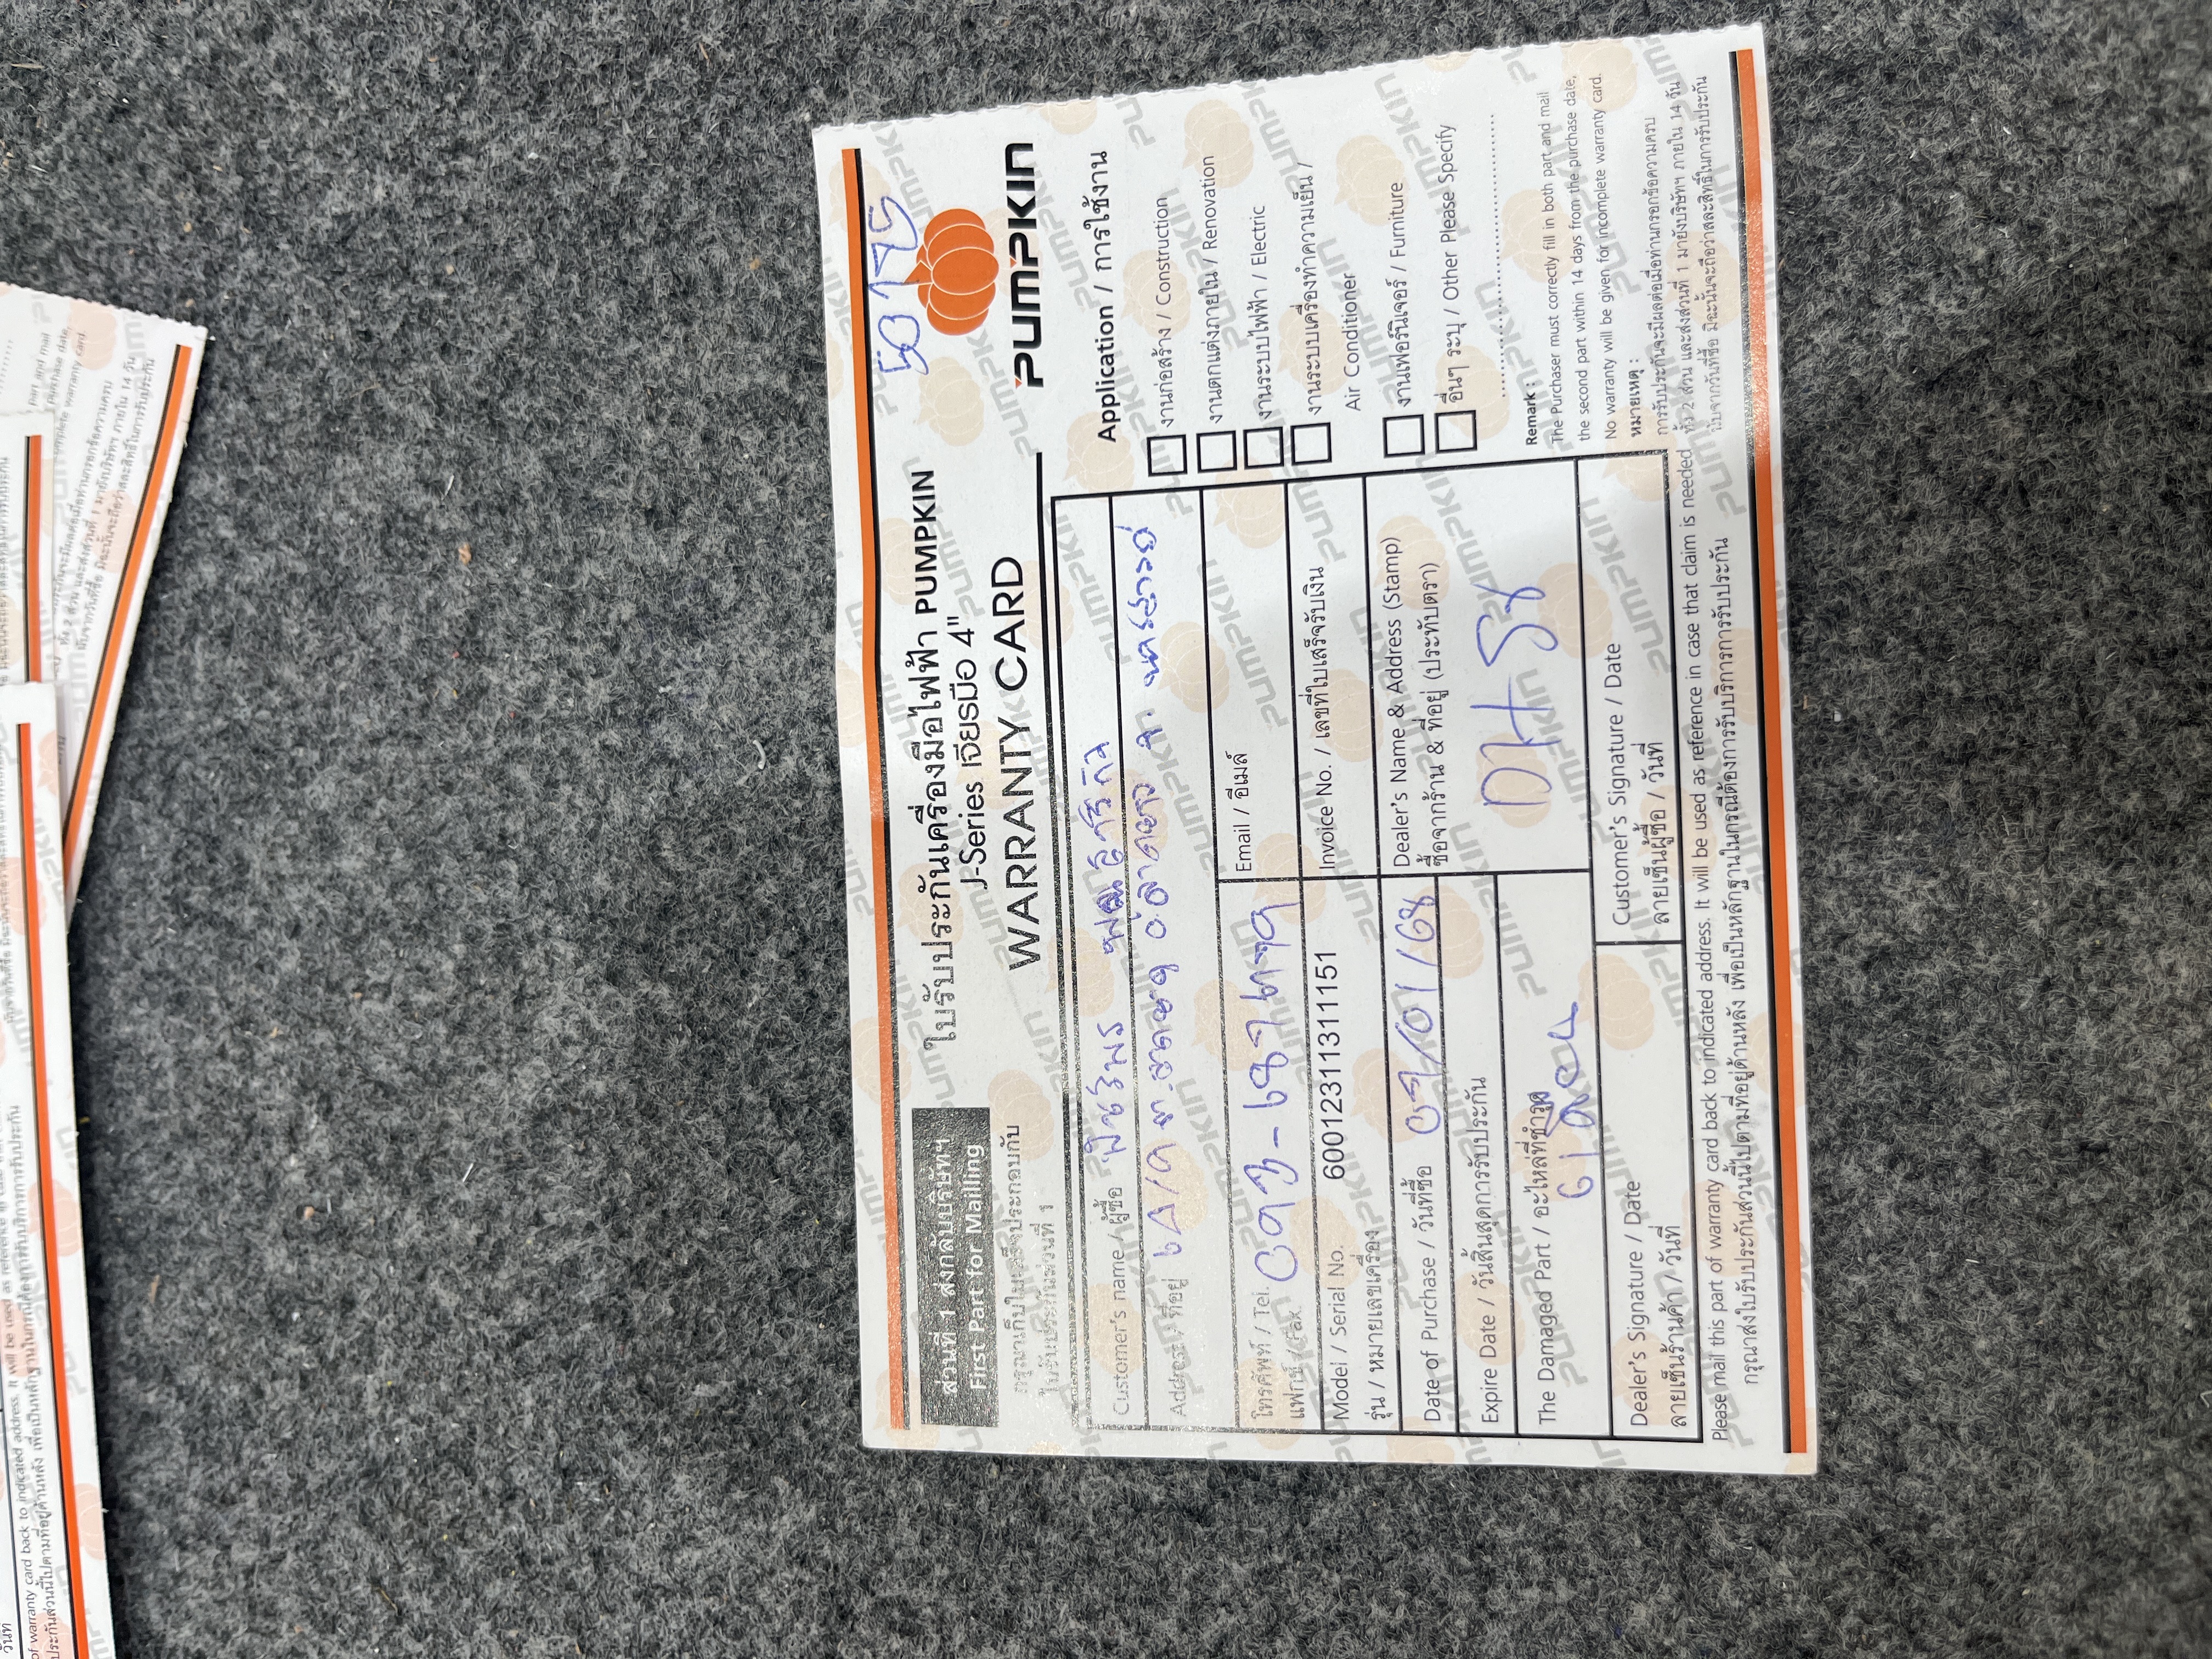 50175
ส่วนที่ 1 ส่งกลับบริษัทฯ
First Part for Mailing
ใบรับประกันเครื่องมือไฟฟ้า PUMPKIN
J-Series เจียรมือ 4"
WARRANTY CARD
PUMPKIN
กรุณาเก็บใบเสร็จประกอบกับ
ใบรับประกันส่วนที่ 1
Customer's name / ผู้ซื้อ
Address / ที่อยู่
จ. นครสวรรค์
โทรศัพท์ / Tel.
แฟกซ์ / Fax.
Email / อีเมล์
Model / Serial No. 6001231131111151
รุ่น / หมายเลขเครื่อง
Invoice No. / เลขที่ใบเสร็จรับเงิน
Date of Purchase / วันที่ซื้อ 07/01/68
Expire Date / วันสิ้นสุดการรับประกัน
Dealer's Name & Address (Stamp)
ซื้อจากร้าน & ที่อยู่ (ประทับตรา)
The Damaged Part / อะไหล่ที่ชำรุด
Dealer's Signature / Date
ลายเซ็นร้านค้า / วันที่
Customer's Signature / Date
ลายเซ็นผู้ซื้อ / วันที่
Application / การใช้งาน
งานก่อสร้าง / Construction
งานตกแต่งภายใน / Renovation
งานระบบไฟฟ้า / Electric
งานระบบเครื่องทำความเย็น /
Air Conditioner
งานเฟอร์นิเจอร์ / Furniture
อื่นๆ ระบุ / Other Please Specify
Remark :
The Purchaser must correctly fill in both part and mail
the second part within 14 days from the purchase date,
No warranty will be given for incomplete warranty card.
หมายเหตุ :
การรับประกันจะมีผลต่อเมื่อท่านกรอกข้อความครบ
ทั้ง 2 ส่วน และส่งส่วนที่ 1 มายังบริษัทฯ ภายใน 14 วัน
นับจากวันที่ซื้อ มิฉะนั้นจะถือว่าสละสิทธิ์ในการรับประกัน
Please mail this part of warranty card back to indicated address. It will be used as reference in case that claim is needed
กรุณาส่งใบรับประกันส่วนนี้ไปตามที่อยู่ด้านหลัง เพื่อเป็นหลักฐานในกรณีต้องการรับบริการการรับประกัน